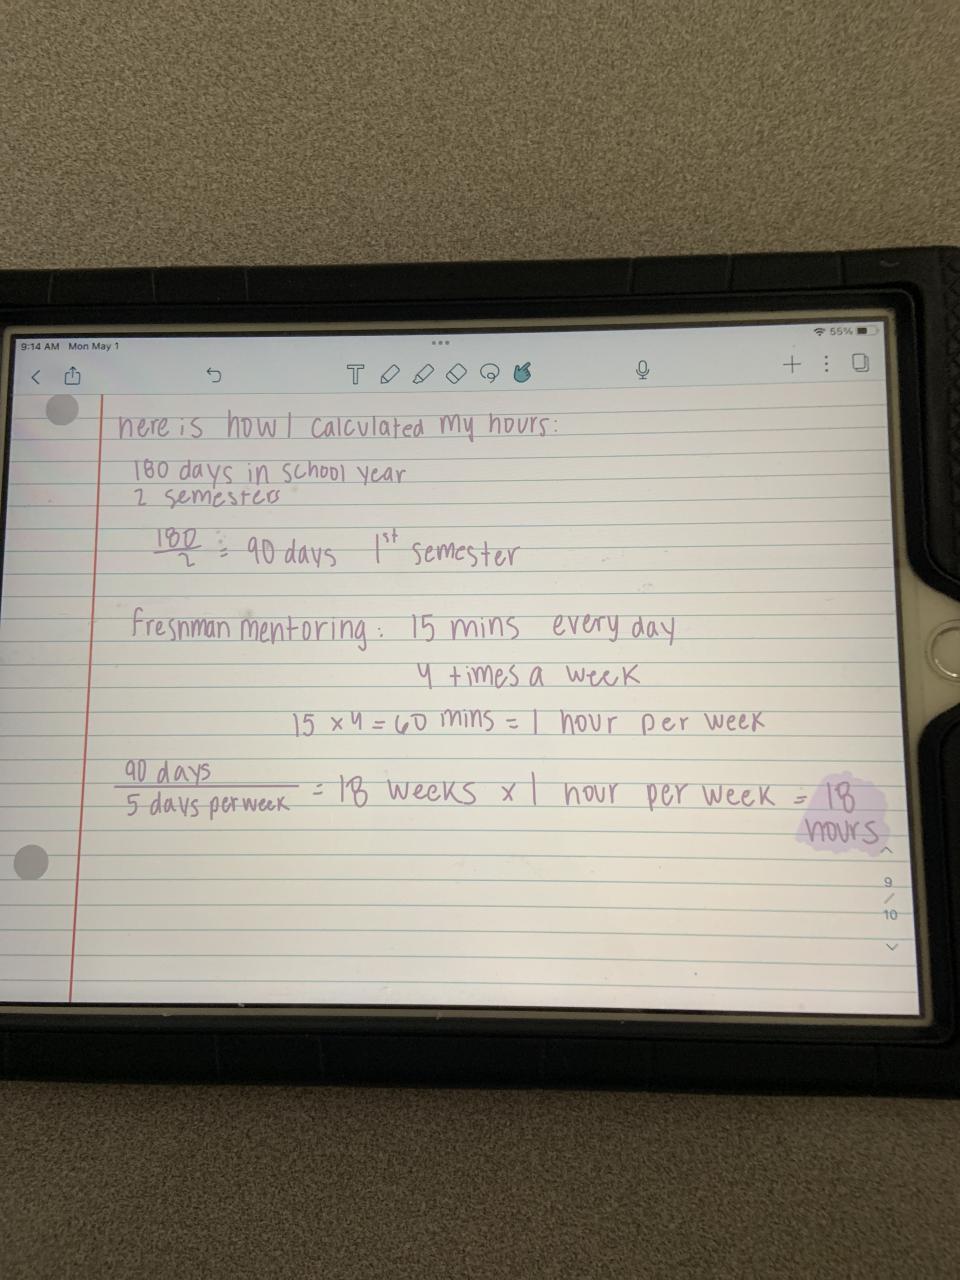 9:14 AM Mon May 1
55%
T
here is how I calculated my hours:
180 days in school year
2 semesters
180/2 = 90 days 1st semester
freshman mentoring: 15 mins every day
4 times a week
15 x 4 = 60 mins = 1 hour per week
90 days / 5 days per week = 18 weeks x 1 hour per week = 18
hours
9
/
10